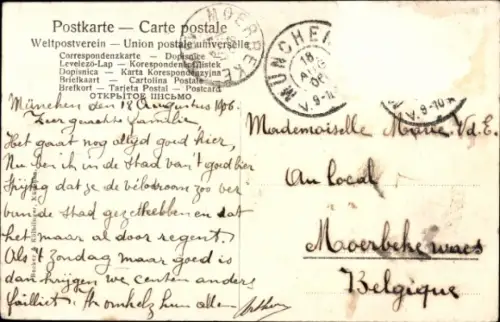 Postkarte — Carte postale
Weltpostverein — Union postale universelle
Correspondenzkarte — Dopisnice
Levelező-Lap — Korespondenční lístek
Dopisnica — Karta Korespondencyjna
Briefkaart — Cartolina Postale
Brefkort — Tarjeta Postal — Postcard
ОТКРЫТОЕ ПИСЬМО
MOERBEKE
MÜNCHEN
18
AUG
06
V. 9-10
V. 9-10
München den 18 Augustus 1906.
Zeer geachte familie
Het gaat nog altijd goed hier,
Nu ben ik in de stad van't goed bier
Spijtig dat ze de vélodroom zoo ver
van de stad gezet hebben en dat
het maar al door regent.
Als 't zondag maar goed is
dan krijgen we centen anders
failliet. Ik omhelz hun allen
Mademoiselle Marie V.d.E.
Au local
Moerbeke waes
Belgique